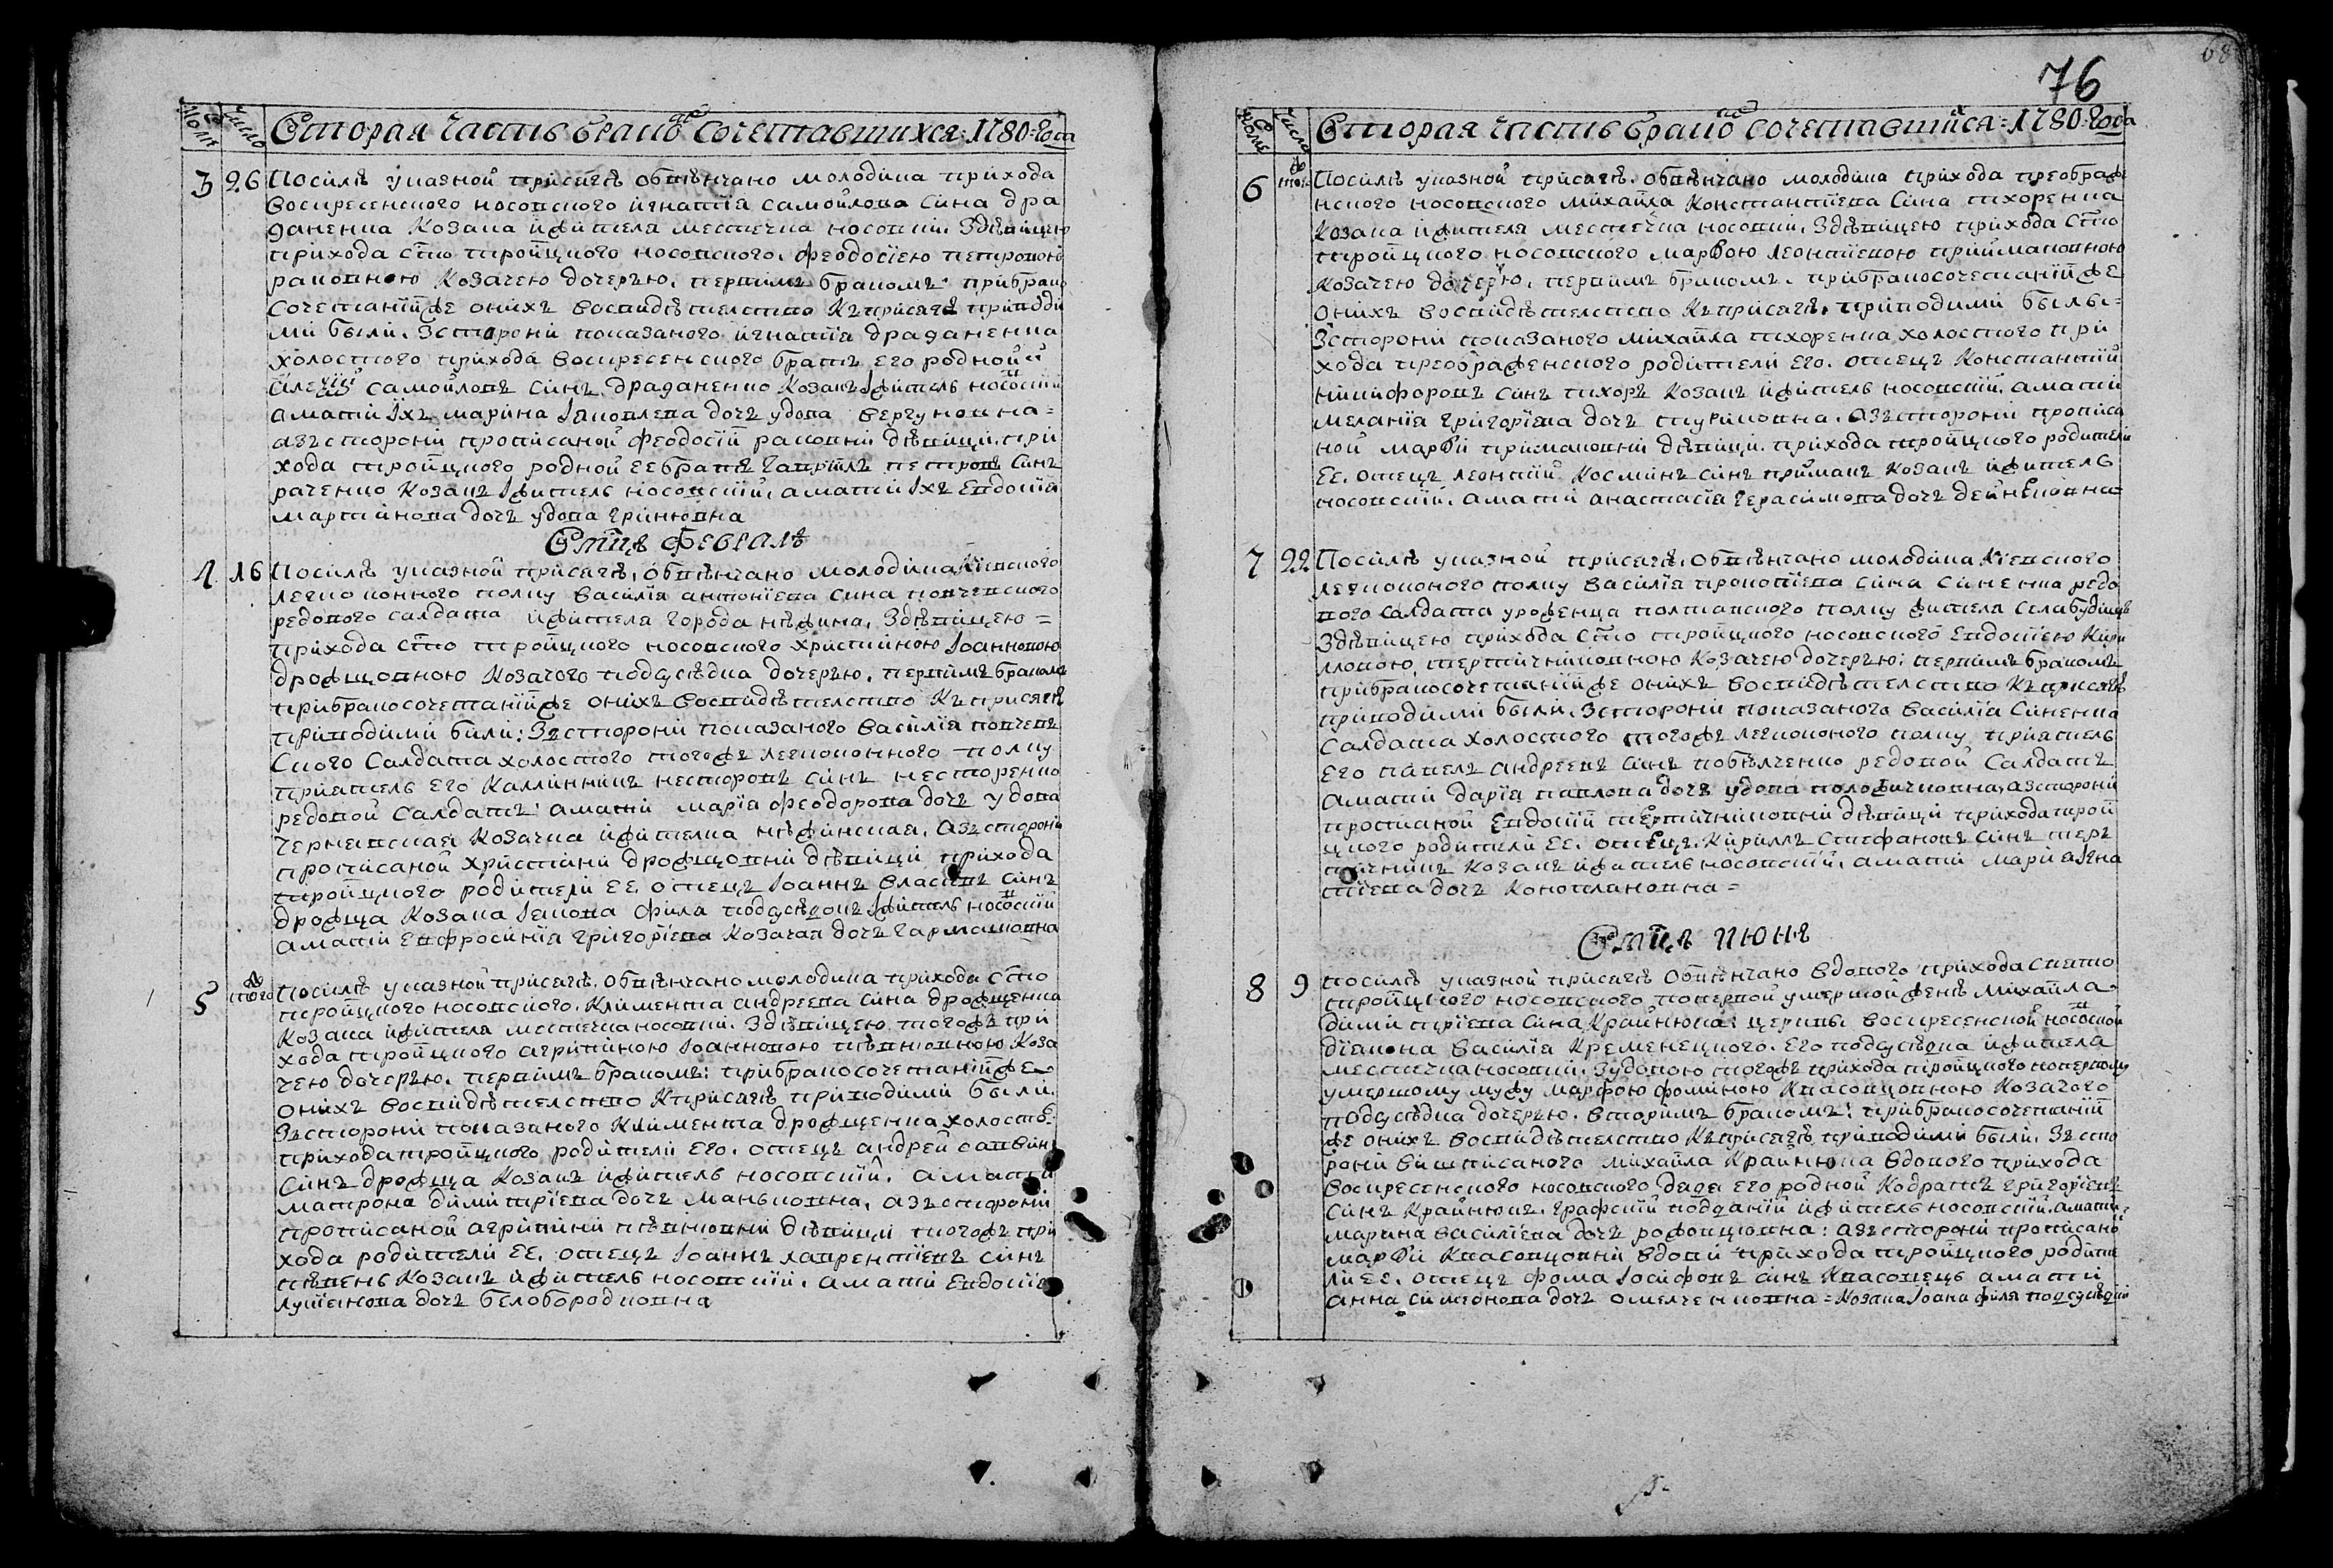 Вторая часть брако сочетавшихся: 1780: Года
3 26 Посилѣ указной присягѣ обвѣнчано молодика прихода
воскресенского носовского игнатія самойлова сина дра
ганенка козака ижителя местечка носовки. Здѣвицею
прихода Сто тройцкого носовского. феодосіею петровою
раковною козачею дочерью. первимъ бракомъ: прибрако
сочетанійже онихъ восвидѣтелство къприсягѣ приводи
ми были. Зсторони показаного игнатія драганенка
холостого прихода воскресенского братъ его родной
Алексій самойловъ синъ драганенко козакъ іжитель носовскій
аматки іхъ марина іаковлева дочь удова вергуновна=
азъсторони прописаной феодосій раковни дѣвици. при
хода тройцкого родной ее братъ гаврілъ петровъ синъ
раченко козакъ іжитель носовскій, аматки іхъ Евдокія
мартинова дочь удова гринювна
Мсцъ февралъ
4 16 Посилѣ указной присягѣ, обвѣнчано молодика Кіевского
легко конного полку василія антоніева сина
редового салдата ижителя города нѣжина. Здѣвицею=
прихода Сто тройцкого носовского христиною Іоанновою
дрожщовною козачого подсусѣдка дочерью. первимъ бракомъ
прибракосочетанійже онихъ восвидѣтелство къ присягѣ
приводими били: Зъстороні показаного василія
ского Салдата холостого тогожъ легкоконного полку
приятель его Каллинникъ несторовъ синъ несторенко
редовой Салдатъ: аматки марія феодорова дочь удова
чернявская козачка ижителка нѣжинская. Азъсторони
прописаной христини дрожщовни дѣвици прихода
тройцкого родители ее отецъ Іоаннъ власіевъ синъ
дрожща козака Іакова фила подсусѣдокъ іжитель носовскій
аматки Евфросинія григоріева козачая дочь гармашовна
5 того Посилѣ указной присягѣ. обвѣнчано молодика прихода Сто
тройцкого носовского. Климента андреева сина дрожщенка
козака ижителя местечка носовки. Здѣвицею тогожъ при
хода тройцкого агрипиною Іоанновою пѣвнювною коза
чею дочерью. первимъ бракомъ: прибракосочетанійже
онихъ восвидѣтелство Кприсягѣ приводими были.
Зъсторони показаного Климента дрожщенка холосто
прихода тройцкого родители его. отецъ андрей
Синъ дрожща козакъ ижитель носовскій. аматки
матрона димитріева дочь маньковна. азъсторони
прописаной агрипини пѣвнювни дѣвици тогожъ при
хода родители ее. отецъ Іоаннъ лаврентіевъ синъ
пѣвень козакъ ижитель носовскій. аматки Евдокія
лукіянова дочь белобородковна
76
68
Вторая часть брако сочетавшихся: 1780: Года
6 того Посилѣ указной присягѣ. обвѣнчано молодика прихода преображе
нского носовского михайла константіева сина тихоренка
козака ижителя местечка носовки. Здѣвицею прихода Сто
тройцкого носовского марѳою леонтіевою приймаковною
козачею дочерью. первимъ бракомъ. прибракосочетанійже
онихъ восвидѣтелство къприсягѣ. приводими были=
Зсторони показаного михайла тихоренка холостого при
хода преображенского родители его. отецъ константій
никифоровъ синъ тихоръ козакъ ижитель носовскій. аматки
меланія григоріева дочь. азъсторони прописа
ной марѳи примаковни дѣвици. прихода тройцкого родители
ее. отецъ леонтій косминъ синъ прймакъ козакъ ижитель
носовскій. аматки анастасія герасимова дочь дейнековна=
7 22 Посилѣ указной присягѣ, обвѣнчано молодика Кіевского
легкоконого полку василія прокопіева сина Синенка редо
вого Салдата уроженца полтавского полку жителя села будищъ
Здѣвицею прихода Сто тройцкого носовского Евдокіею Кири
ловою козачею дочерью: первимъ бракомъ
прибракосочетанійже онихъ восвидѣтелство къприсягѣ
приводими были. Зсторони показаного василія Синенка
Салдата холостого тогожъ легкоконого полку приятель
его павелъ андреевъ синъ редовой Салдатъ
аматки дарія павлова дочь удова азсторони
прописаной Евдокій дѣвици прихода трой
цкого родители ее. отецъ. Кириллъ Стефановъ синъ
козакъ ижитель носовскій. аматки марія Ігна
тіева дочь коноплановна=
Мсцъ июнъ
8 9 посилѣ указной присягѣ обвѣнчано вдового прихода святио
тройцкого носовского попервой умершой женѣ михайла
димитріева сина Крайнюка: церкви воскресенской носовской
діакона василія Кременецкого. его подсусѣдка ижителя
местечка носовки. Зудовою тогожъ прихода тройцкого поперве
умершому мужу марфою фоминою Квасовцовною козачого
подсусѣдка дочерью. вторимъ бракомъ: прибракосочетаній
же онихъ восвидѣтелство къприсягѣ приводими были. Зъсто
рони вишписаного михайла Крайнюка вдового прихода
воскресенского носовского дядя его родной Кодратъ григоріевъ
синъ Крайнюкъ. графский подданій ижитель носовскій. аматки
марина василіева дочь: азъсторони прописано
марѳи Квасовцовни вдови прихода тройцкого родите
ли ее. отецъ фома Іосифовъ синъ Квасовецъ аматки
анна симеонова дочь омелченковна= козака Іоана филя подсусѣдки